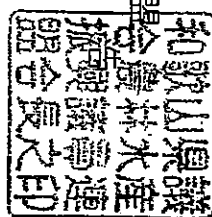 和歌山県議
会農林水産
振興議員連
盟会長之印